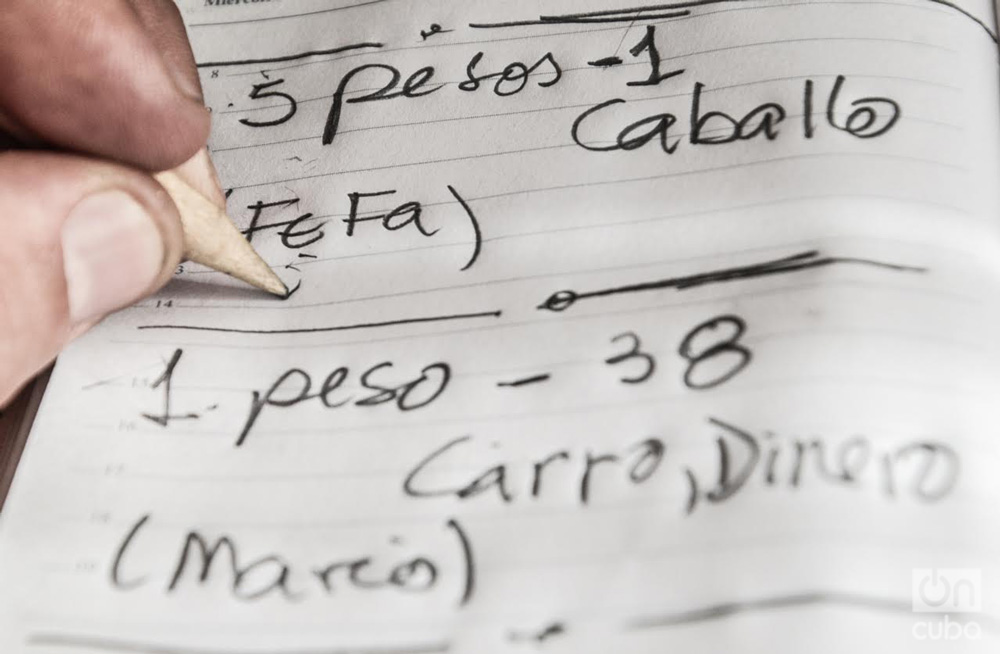 Miércol
8
5 pesos - 1
Caballo
(FeFa)
14
1 peso - 38
Carro, Dinero
(Marcos)
on
cuba